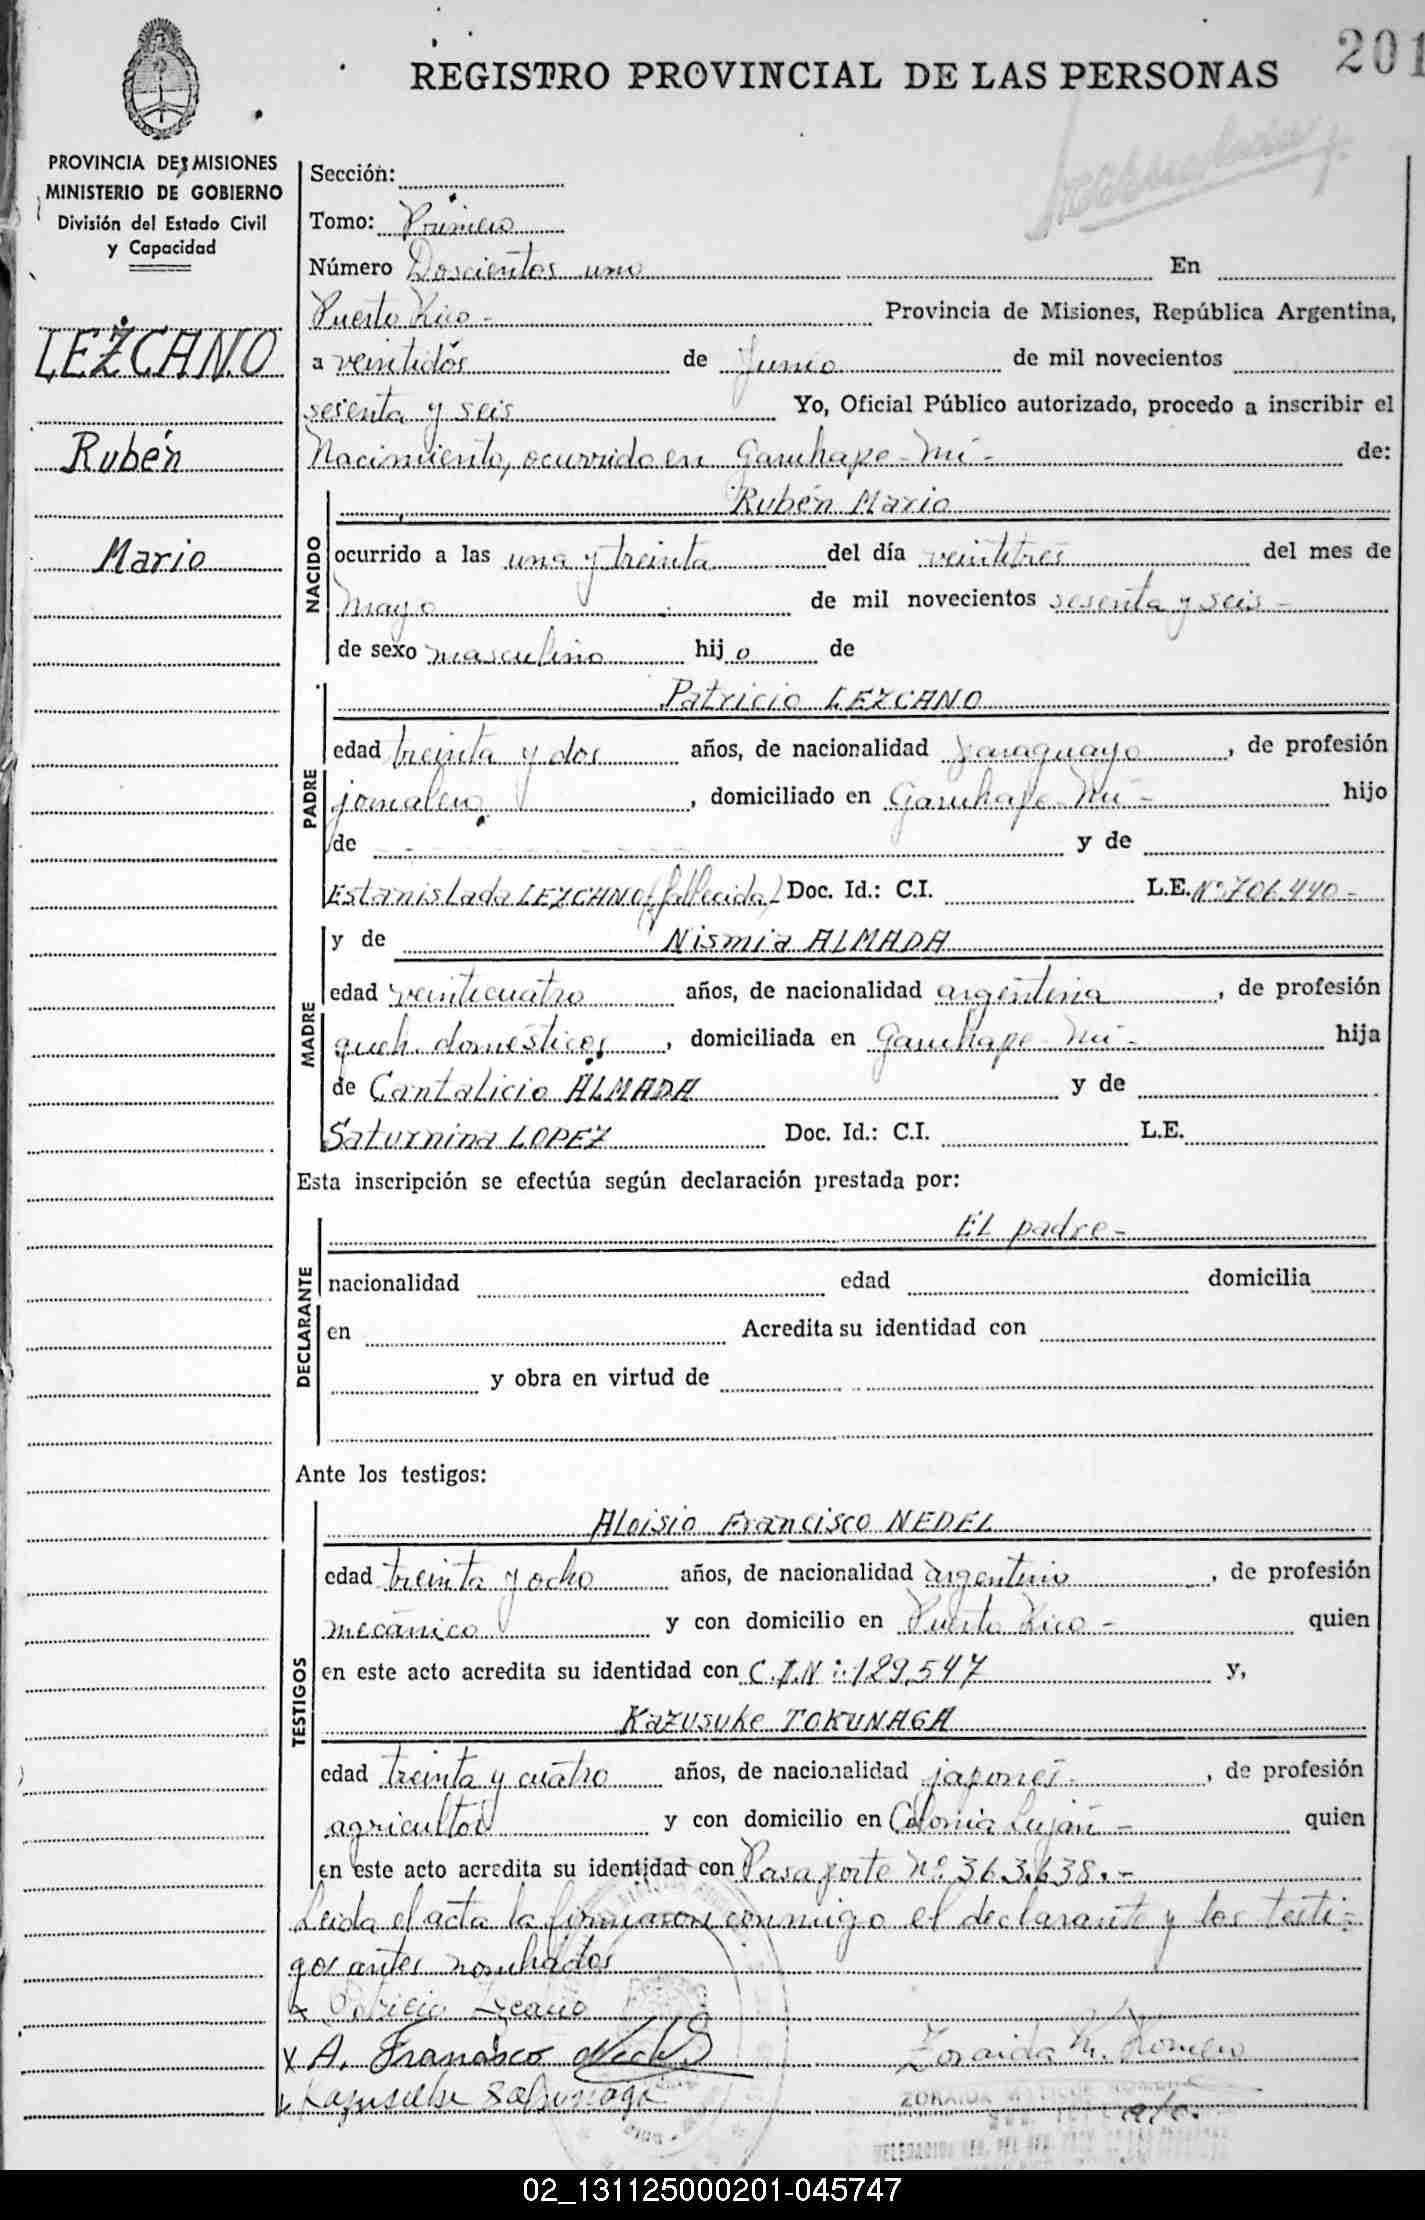 201
REGISTRO PROVINCIAL DE LAS PERSONAS
PROVINCIA DE MISIONES
MINISTERIO DE GOBIERNO
División del Estado Civil
y Capacidad
LEZCANO
Rubén
Mario
Sección:
Tomo: Primero
Número Doscientos uno En
Puerto Rico - Provincia de Misiones, República Argentina,
a veintidós de Junio de mil novecientos
sesenta y seis Yo, Oficial Público autorizado, procedo a inscribir el
Nacimiento, ocurrido en Garuhape-Mí - de:
NACIDO
Rubén Mario
ocurrido a las una y treinta del día veintitres del mes de
mayo de mil novecientos sesenta y seis -
de sexo masculino hijo de
PADRE
Patricio LEZCANO
edad treinta y dos años, de nacionalidad paraguayo, de profesión
jornalero, domiciliado en Garuhape-Mí - hijo
de y de
Estanislada LEZCANO (fallecida) Doc. Id.: C.I. L.E. Nº 706.440 -
MADRE
y de Nismia ALMADA
edad veinticuatro años, de nacionalidad argentina, de profesión
queh. domésticos, domiciliada en Garuhape-Mí - hija
de Cantalicio ALMADA y de
Saturnina LOPEZ Doc. Id.: C.I. L.E.
Esta inscripción se efectúa según declaración prestada por:
DECLARANTE
El padre -
nacionalidad edad domicilia
en Acredita su identidad con
y obra en virtud de
Ante los testigos:
TESTIGOS
Aloisio Francisco NEDEL
edad treinta y ocho años, de nacionalidad argentino, de profesión
mecánico y con domicilio en Puerto Rico - quien
en este acto acredita su identidad con C.I.Nº: 129.547 y,
Kazusuke TOKUNAGA
edad treinta y cuatro años, de nacionalidad japonés -, de profesión
agricultor y con domicilio en Colonia Luján - quien
en este acto acredita su identidad con Pasaporte Nº. 363.638. -
Leida el acta la firmaron conmigo el declarante y los testi-
gos antes nombrados
x Patricio Lzcano
x A. Francisco Nedel
x Kazusuke
Zoraida M. Romero
ZORAIDA
02_131125000201-045747